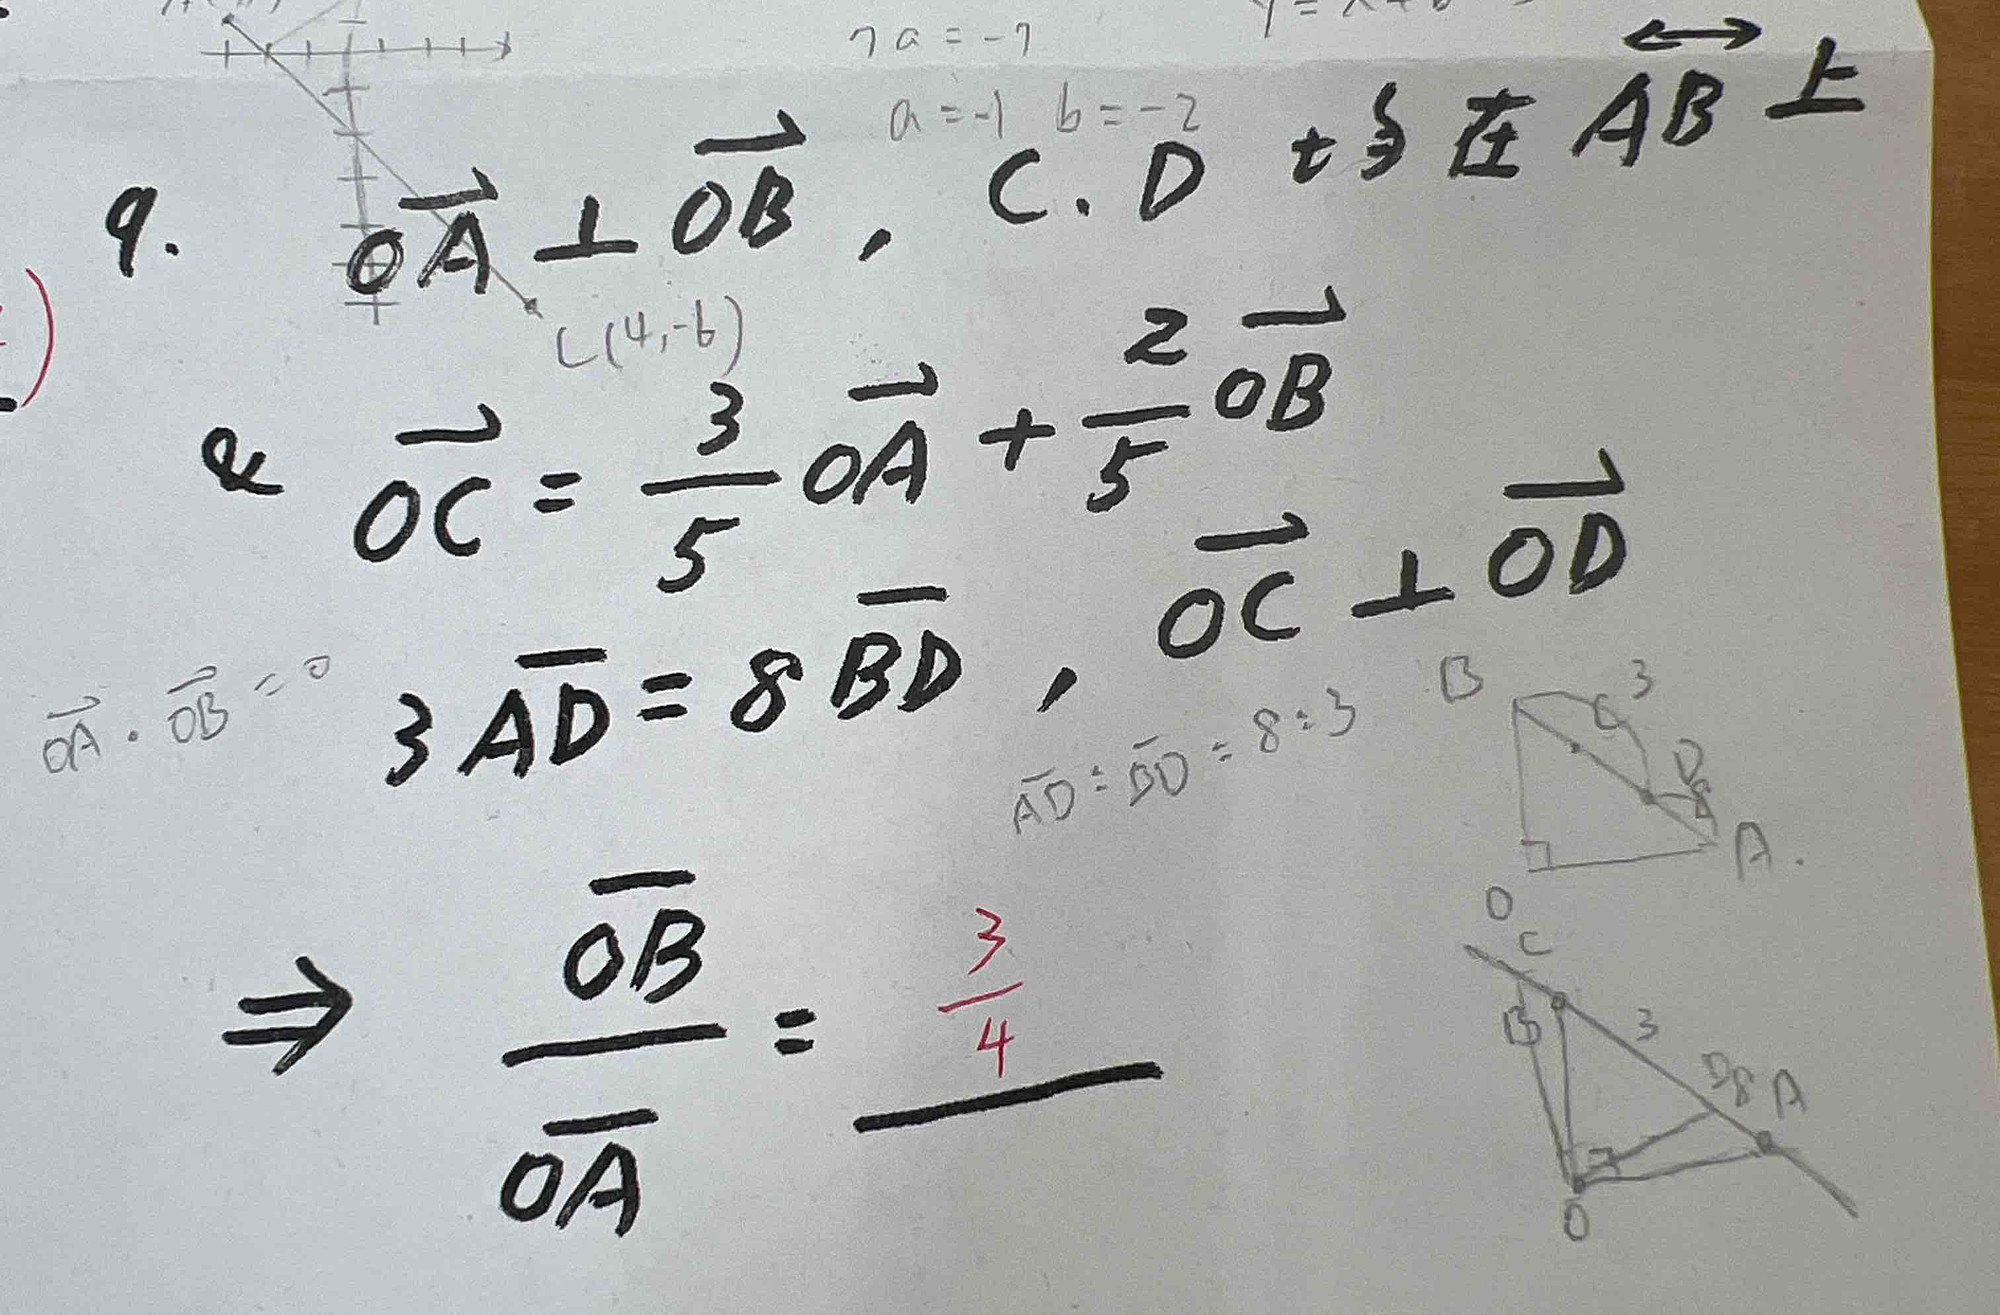 7a = -7
a = -1 b = -2
9. \overrightarrow{OA} ⊥ \overrightarrow{OB}, C. D 均在 \overleftrightarrow{AB} 上
C(4,-6)
& \overrightarrow{OC} = \frac{3}{5} \overrightarrow{OA} + \frac{2}{5} \overrightarrow{OB}
3\overline{AD} = 8\overline{BD}, \overrightarrow{OC} ⊥ \overrightarrow{OD}
\overrightarrow{OA} · \overrightarrow{OB} = 0
\overline{AD} : \overline{BD} = 8 : 3
B C 3
D 8
A
O
⇒ \frac{\overline{OB}}{\overline{OA}} = \frac{3}{4}
C
B 3
D 8 A
O